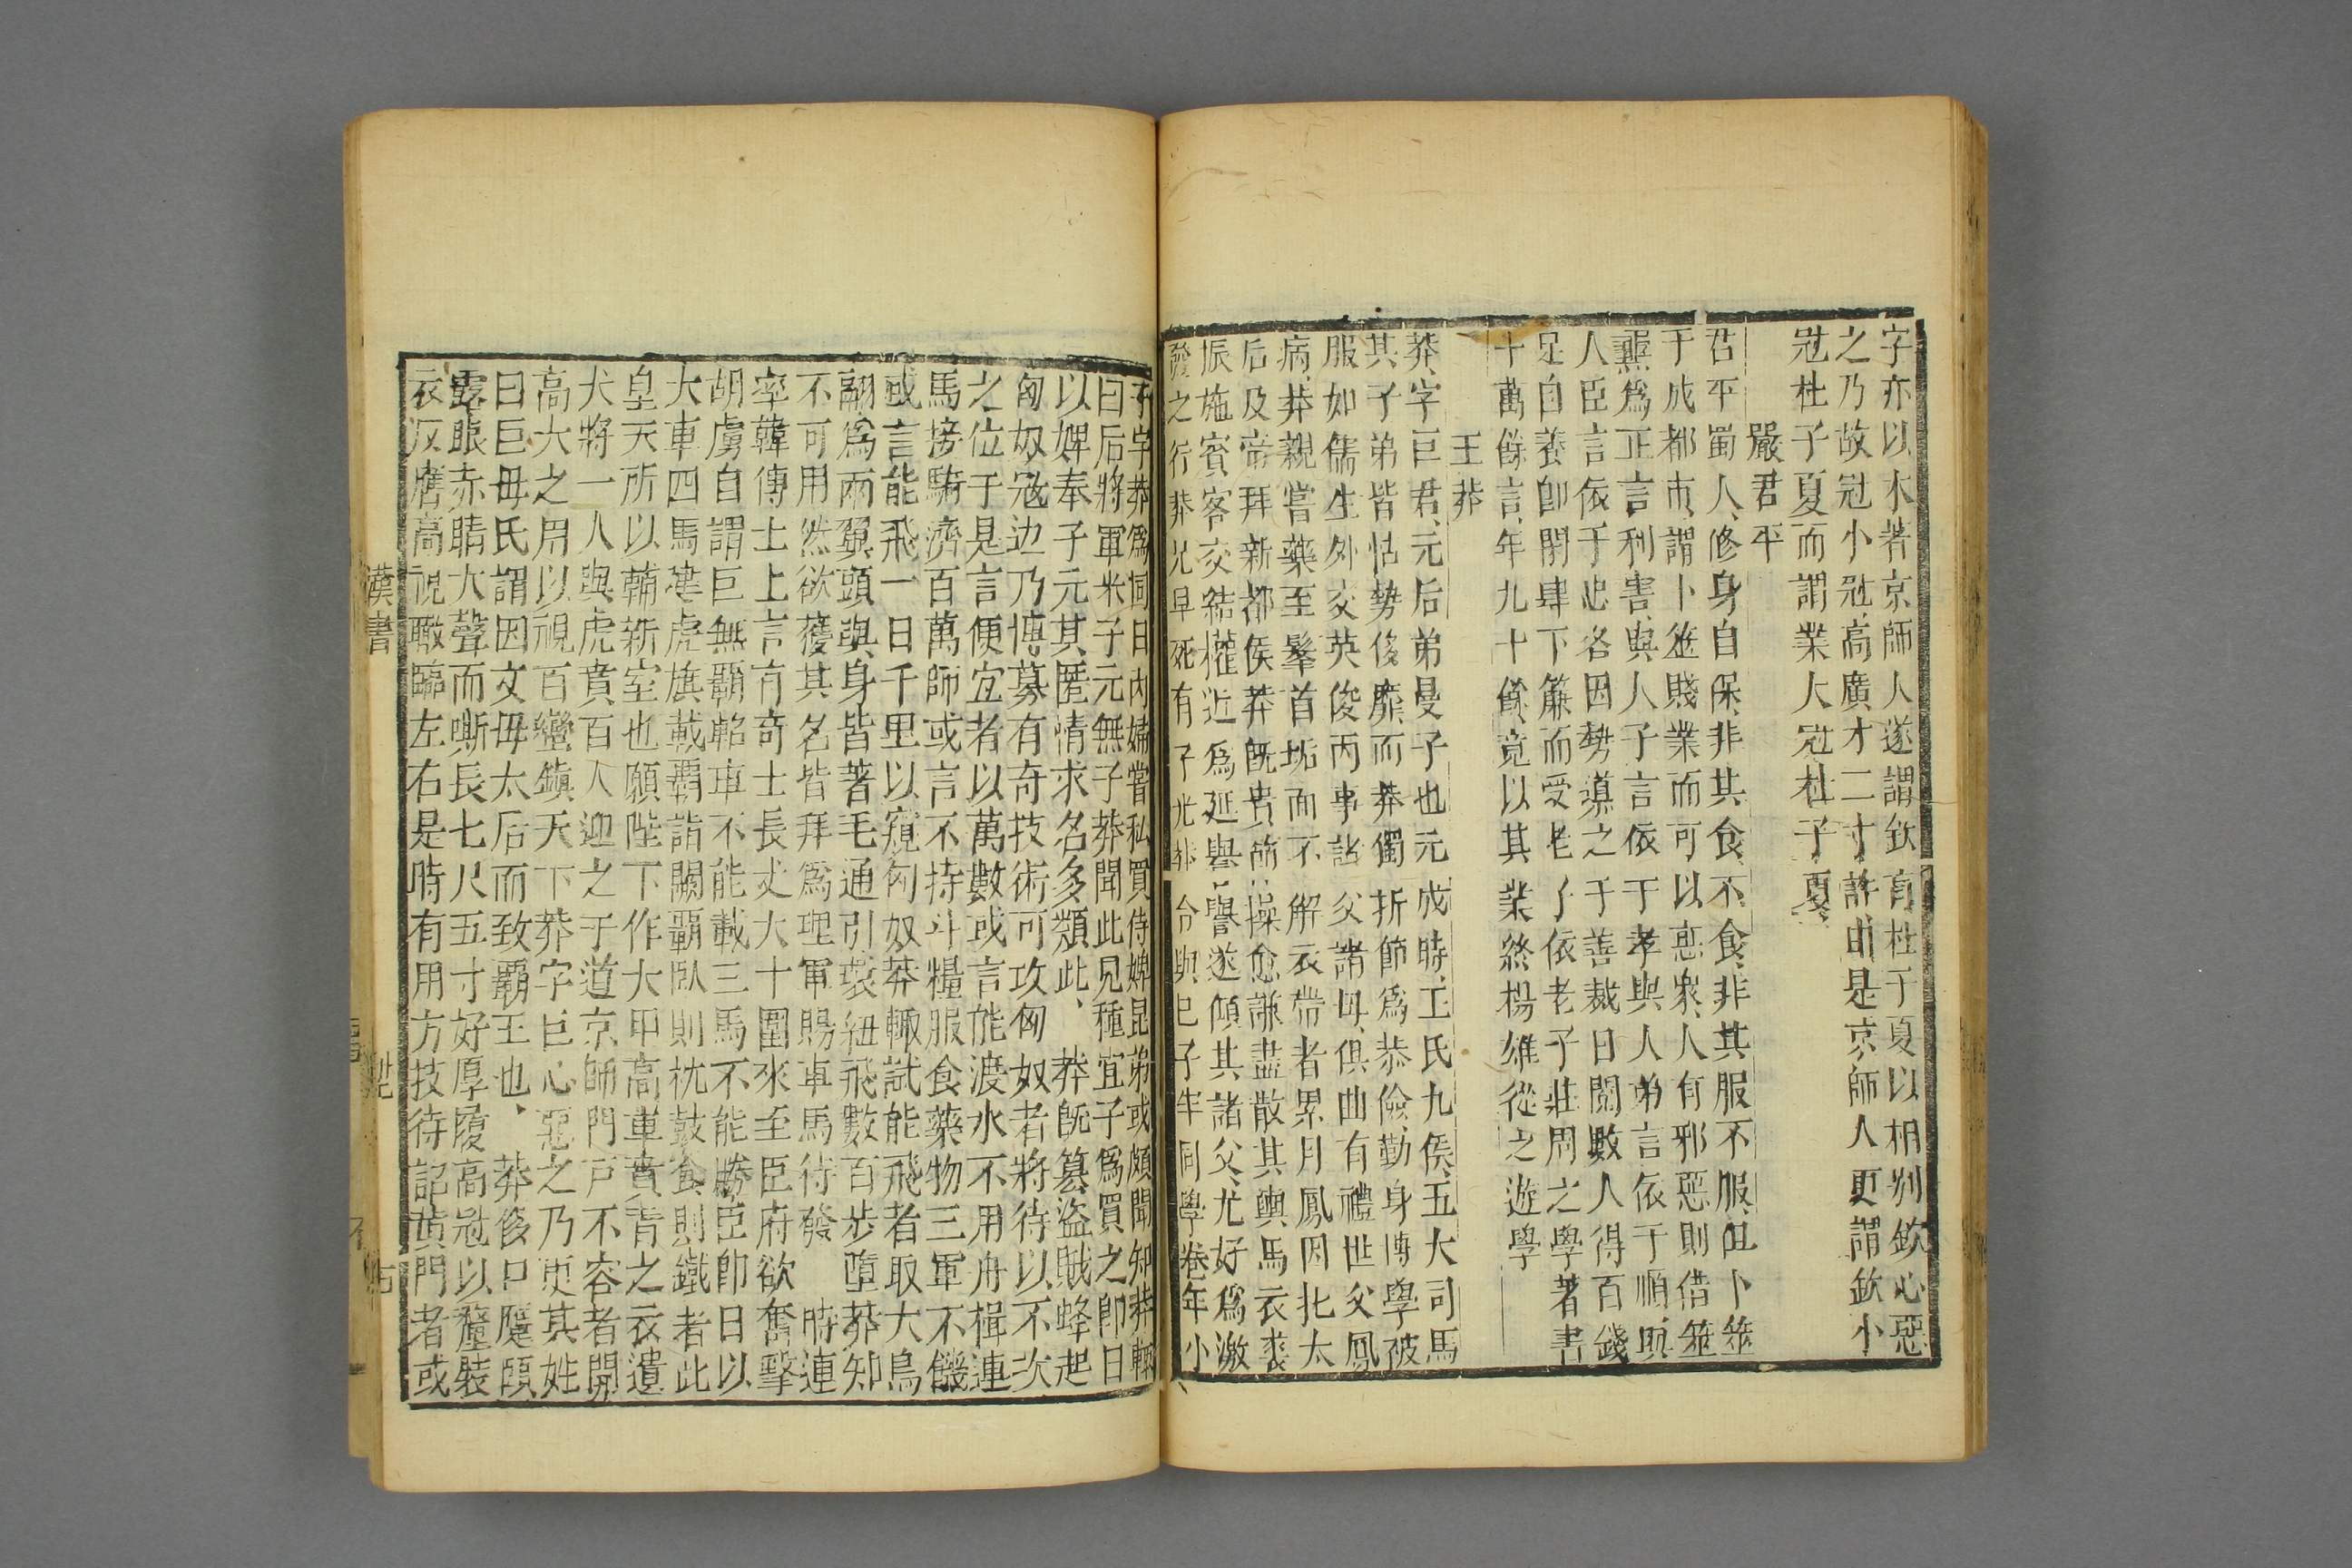 字亦以木著京師人遂謂欽有杜子夏以相別欽心惡
之乃故冠小冠高廣才二寸許由是京師人更謂欽小
冠杜子夏而謂業大冠杜子夏
嚴君平
君平蜀人、修身自保、非其食、不食、非其服不服、但卜筮
于成都市、謂卜筮賤業而可以惠衆、人有邪惡則借筮
爲正言利害、與人子言依于孝與人弟言依于順、與
人臣言依于忠各因勢導之于善裁日閱數人得百錢
足自養卽閉肆下簾而受老子依老子莊周之學著書
十萬餘言、年九十餘、竟以其業終楊雄從之遊學
王莽
莽、字巨君、元后弟曼子也元成時、王氏九侯、五大司馬
其子弟皆怙勢侈靡而莽獨折節爲恭儉、勤身博學被
服如儒生外交英俊內事諸父諸母、俱曲有禮世父鳳
病、莽親嘗藥至髼首垢而不解衣帶者累月鳳因托太
后及帝拜新都侯莽旣貴節操愈謙盡散其輿馬衣裘
振施賓客交結權近爲延譽、譽遂傾其諸父、尤好爲激
發之行莽兄早死有子光莽令與已子牢同學、卷年小
子字莽爲同日內婦嘗私買侍婢昆弟或頗聞知莽輒
曰后將軍朱子元無子莽聞此兒種宜子爲買之卽日
以婢奉子元其匿情求名多類此、莽旣簒盜賊蜂起
匈奴冦边乃博募有奇技術可攻匈奴者將待以不次
之位于是言便宜者以萬數或言能渡水不用舟楫連
馬接騎濟百萬師或言不持斗糧服食藥物三軍不饑
或言能飛一日千里以窺匈奴莽輒試能飛者取大鳥
翮爲兩翼頭與身皆著毛通引環紐飛數百步墮莽知
不可用然欲獲其名皆拜爲理軍賜車馬待發時連
率韓博士上言有奇士長丈大十圍來至臣府欲奮擊
胡虜自謂巨無霸軺車不能載三馬不能勝臣卽日以
大車四馬建虎旗載霸詣闕霸臥則枕鼓食則鐵者此
皇天所以輔新室也願陛下作大甲高車賁育之衣遺
大將一人與虎賁百人迎之于道京師門戸不容者開
高大之用以視百蠻鎮天下莽字巨心惡之乃更其姓
曰巨毋氏謂因文毋太后而致霸王也、莽侈口蹷頤
露眼赤睛大聲而嘶長七尺五寸好厚履高冠以氂裝
衣反膺高視瞰臨左右是時有用方技待詔黃門者或
漢書